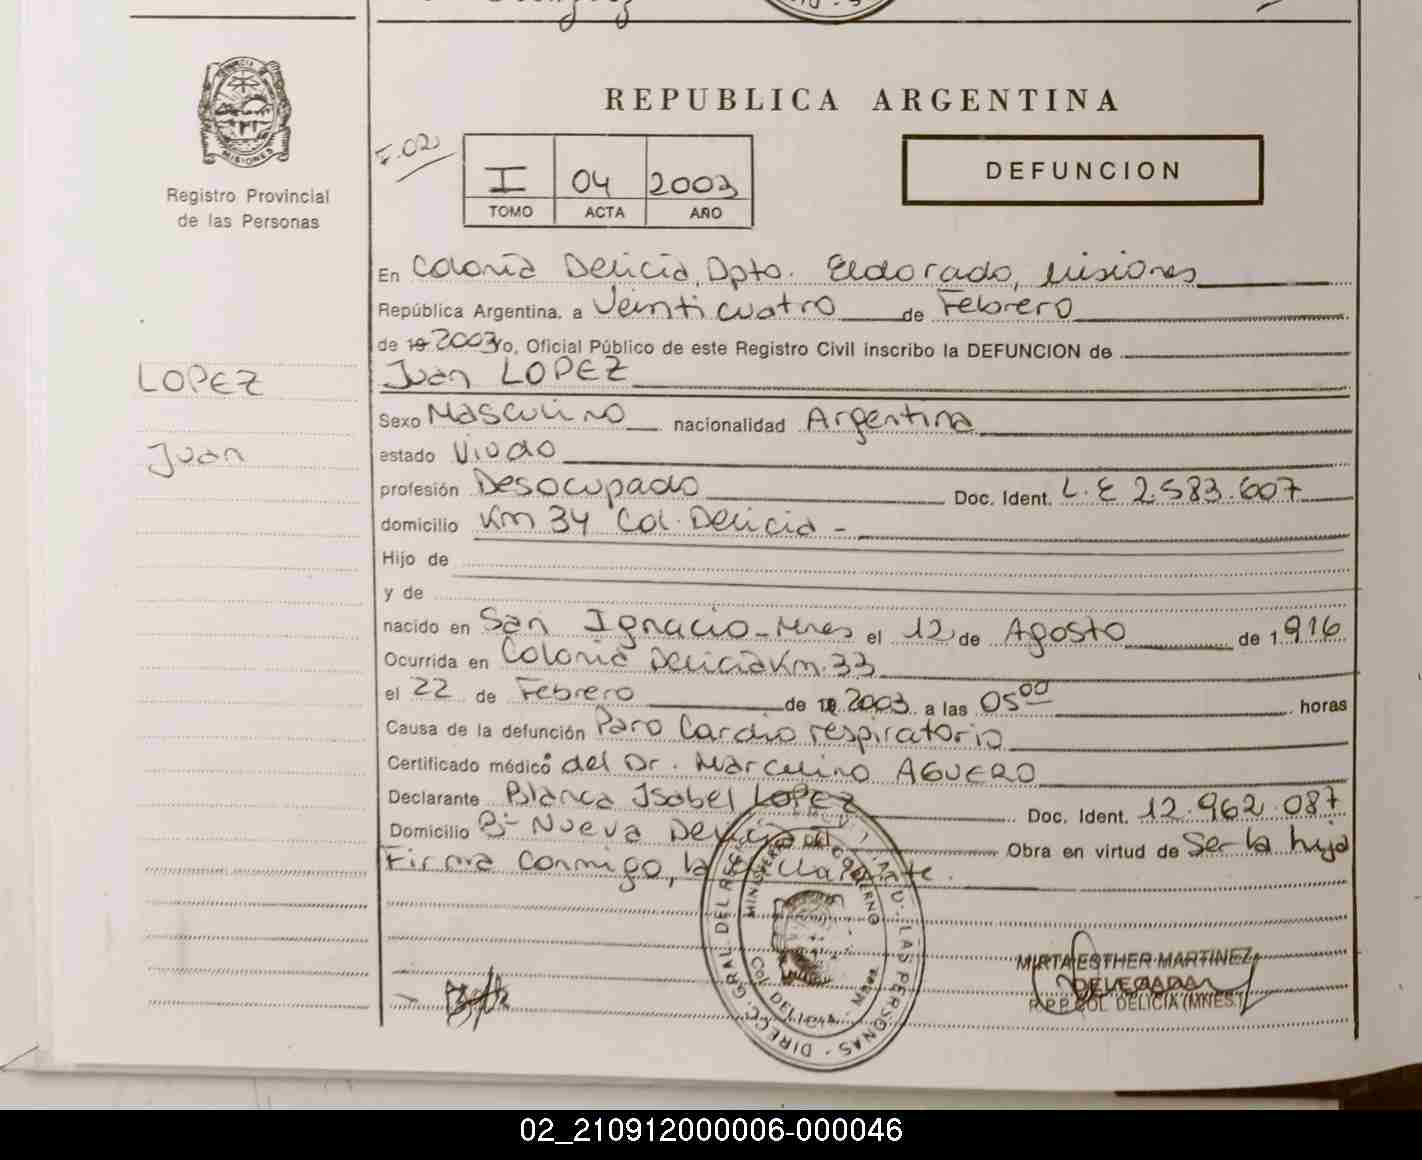 REPUBLICA ARGENTINA
DEFUNCION
I 04 2003
TOMO ACTA AÑO
MISIONES
Registro Provincial
de las Personas
LOPEZ
Juan
En Colonia Delicia, Dpto. Eldorado, Misiones
República Argentina, a Veinticuatro de Febrero
de 19 2003 yo, Oficial Público de este Registro Civil inscribo la DEFUNCION de
Juan LOPEZ
Sexo Masculino nacionalidad Argentina
estado Viudo
profesión Desocupado Doc. Ident. L.E 2.583.607
domicilio Km 34 Col. Delicia -
Hijo de
y de
nacido en San Ignacio - Mnes el 12 de Agosto de 1.916
Ocurrida en Colonia Delicia Km. 33
el 22 de Febrero de 19 2003 a las 05 00 horas
Causa de la defunción Paro Cardio respiratorio
Certificado médico del Dr. Marcelino AGUERO
Declarante Blanca Isabel LOPEZ Doc. Ident. 12.962.087
Domicilio Bº Nueva Delicia Obra en virtud de Ser la hija
Firma conmigo, la declarante.
MINISTERIO DEL GOBIERNO
COL. DELICIA - Mnes
MIRTA ESTHER MARTINEZ
DELEGADA
R.P.P. COL. DELICIA (MNES.)
02_210912000006-000046